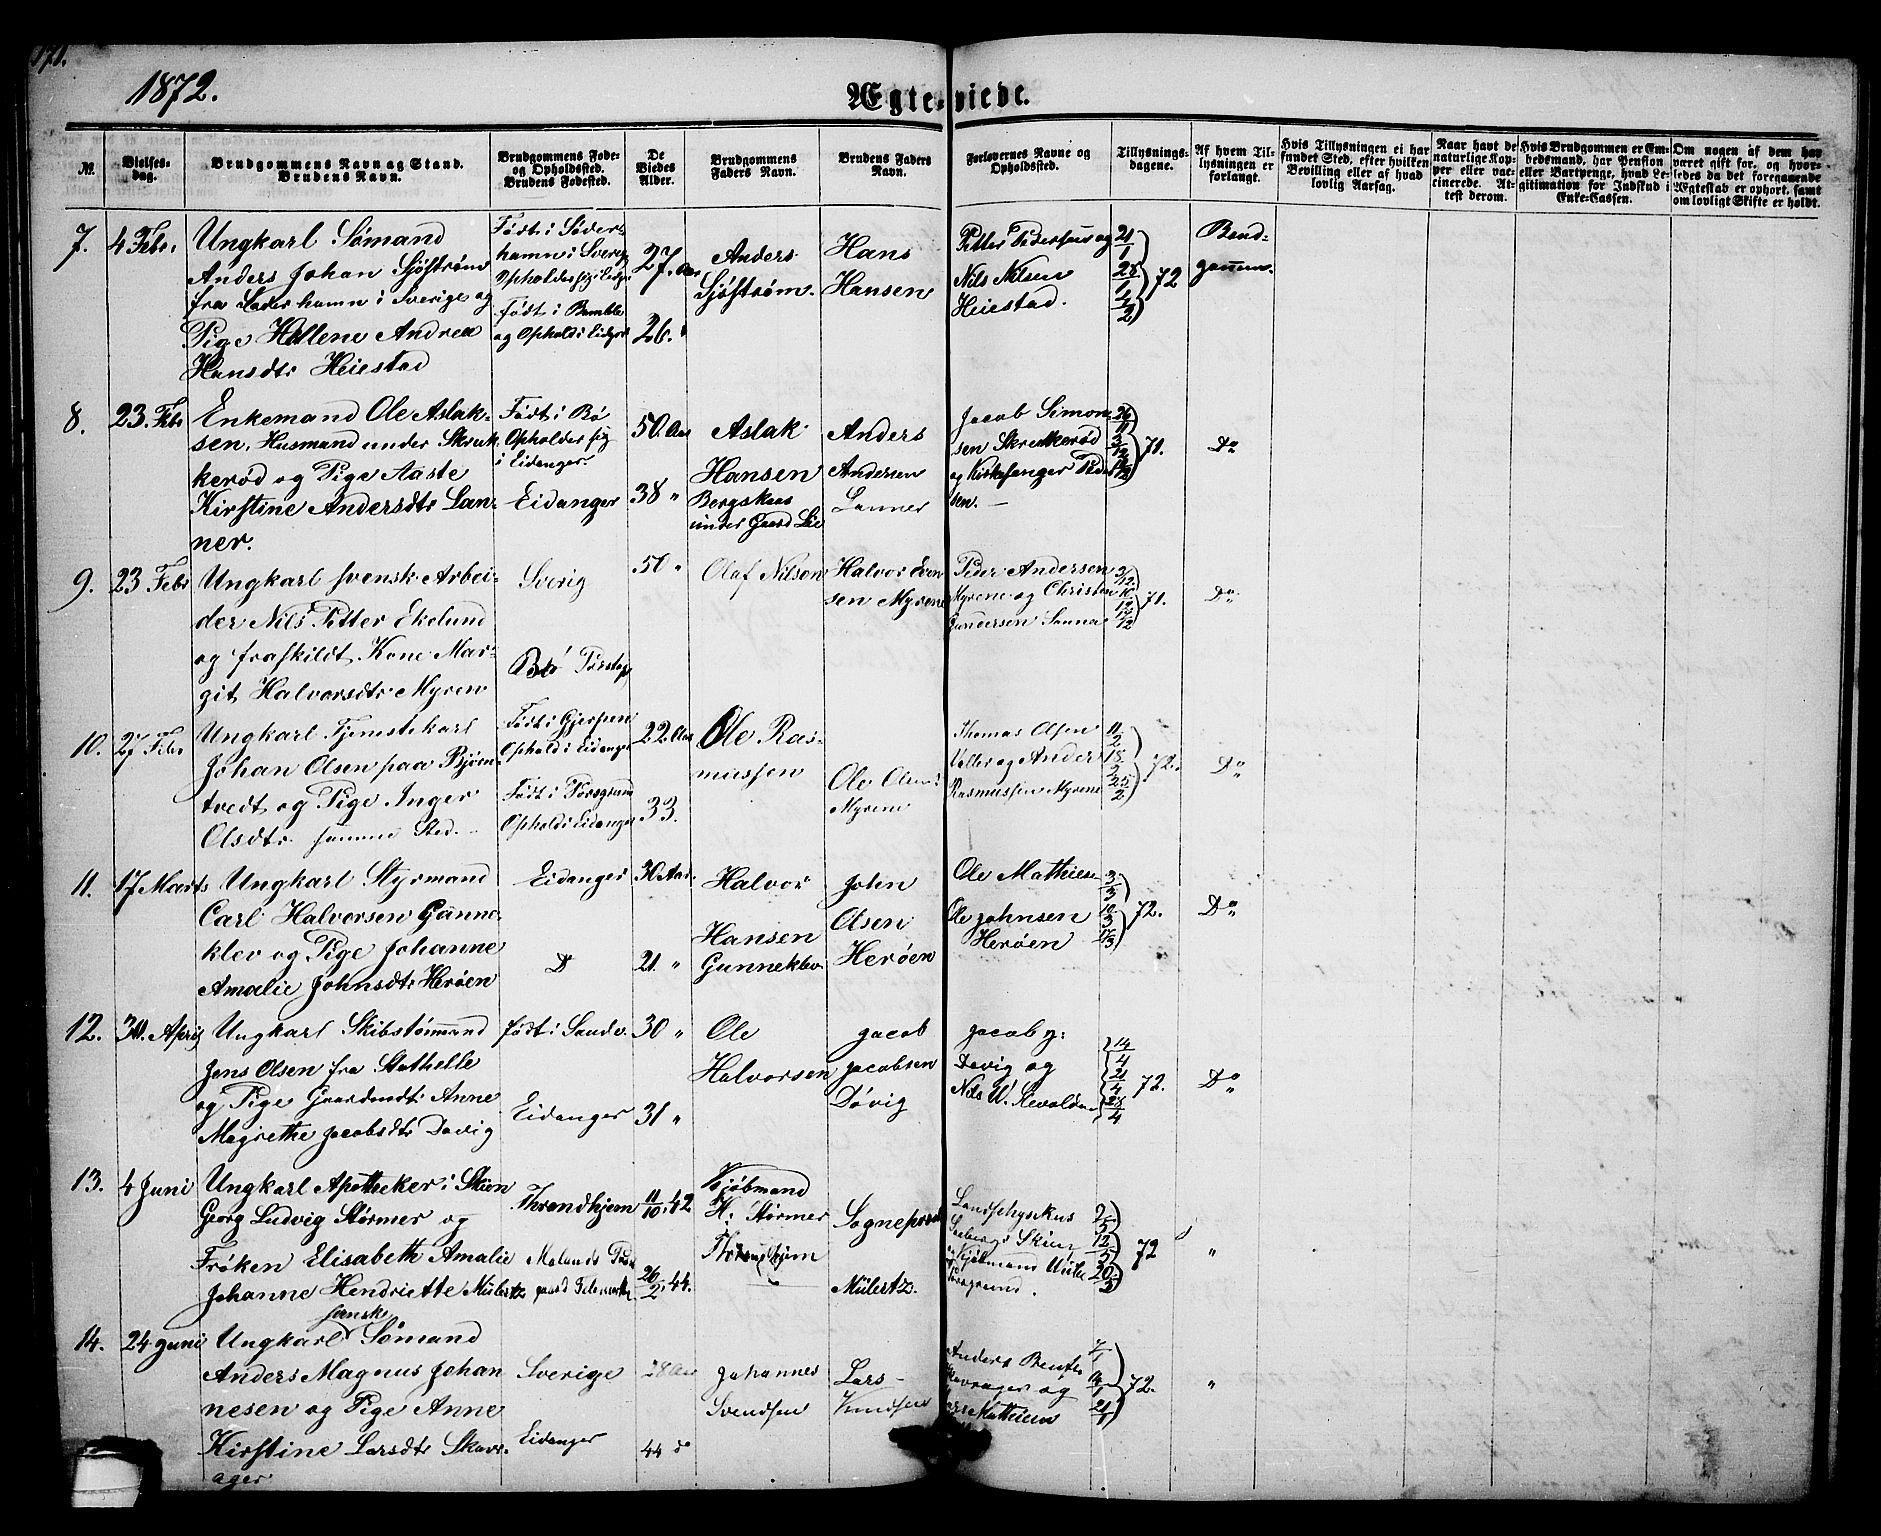 171.
1872.
Ægteviede.
No.
Vielses-
dag.
Brudgommens Navn og Stand.
Brudens Navn.
Brudgommens Føde-
og Opholdssted.
Brudens Fødested.
De
Viedes
Alder.
Brudgommens
Faders Navn.
Brudens Faders
Navn.
Forlovernes Navne og
Opholdssted.
Tillysnings-
dagene.
Af hvem Til-
lysningen er
forlangt.
Hvis Tillysningen ei har
fundet Sted, efter hvilken
Bevilling eller af hvad
lovlig Aarsag.
Naar havt de
naturlige Kop-
per eller vac-
cinerede. At-
test derom.
Hvis Brudgommen er Em-
bedsmand, har Pension
eller Vartpenge, hvad Le-
gitimation for Indskud i
Enke-Cassen.
Om nogen af dem har
været gift før, og hvor-
ledes da det foregaaende
Ægteskab er ophørt, samt
om lovligt Skifte er holdt.
7.
4 Febr.
Ungkarl Sømand
Anders Johan Sjöström
fra Söderhamn i Sverige og
Pige Hellene Andrea
Hansdtr Heiestad
Født i Söder-
hamn i Sverig
Opholder sig i Eidgr
Født i Bamble
og Ophold i Eidgr
27. Aar
26. "
Anders
Sjöström.
Hans
Hansen
Petter Pedersen og
Nils Nilsen
Heiestad.
21/1
28/1
4/2
72
Brud-
gommen.
8.
23. Febr
Enkemand Ole Aslak-
sen, Husmand under Skruk-
kerød og Pige Aaste
Kirstine Andersdtr Lan-
ner.
Født i Bø
Opholder sig
i Eidanger.
Eidanger
50. Aar
38 "
Aslak
Hansen
Bergskaas
under Gaard Lie
Anders
Andersen
Lanner
Jacob Simon-
sen Skrukkerød
og Kirkesanger Peder
sen. —
26/11
3/12
10/12
71.
Do
9.
23 Febr
Ungkarl svensk Arbei-
der Nils Petter Ekelund
og fraskildt Kone Mar-
git Halvorsdtr Myren
Sverig
Bø
50 "
Olaf Nilson
Halvor Even
sen Myrene
Peder Andersen
Myrene og Christen
Gundersen Sanna
3/12
10/12
17/12
71.
Do
10.
27 Febr
Ungkarl Tjenestekarl
Johan Olsen paa Bjørn-
tvedt og Pige Inger
Olsdtr. samme Sted.
Født i Gjerpen
Ophold i Eidanger
Født i Porsgrund
Ophold i Eidanger
22 Aar
33.
Ole Ras-
mussen
Ole Olsen
Myrene
Thomas Olsen
Valler og Anders
Rasmussen Myrene
11/2
18/2
25/2
72.
Do
11.
17 Marts
Ungkarl Styrmand
Carl Halvorsen Gunne-
klev og Pige Johanne
Amalie Johnsdtr Herøen
Eidanger
D
30 Aar.
21. "
Halvor
Hansen
Gunneklev
John
Olsen
Herøen
Ole Mathiesen
Ole Johnsen
Herøen
3/3
10/3
17/3
72.
Do
12.
30. April
Ungkarl Skibstømmand
Jens Olsen fra Stathelle
og Pige Gaardmdtr Anne
Magrethe Jacobsdtr Døvig
født i Sandv.
Eidanger
30 "
31 "
Ole
Halvorsen
Jacob
Jacobsen
Døvig
Jacob J:
Døvig og
Nils W.
14/4
21/4
28/4
72.
Do
13.
4 Juni
Ungkarl Apotheker i Skien
Georg Ludvig Størmer og
Frøken Elisabeth Amalie
Johanne Hendriette Mülertz
Throndhjem
Molands Præste
gaard Telemarken
11/10 42
26/2 44.
Kjøbmand
H. Størmer
Throndhjem
Sognepræst
Mülertz.
Landphysikus
i Skien
og Kjøbmand
Porsgrund.
5/5
12/5
20/5
72
"
14.
24 Juni
svensk
Ungkarl Sømand
Anders Magnus Johan
nesen og Pige Anne
Kirstine Larsdtr Skavr-
ager
Sverige
Eidanger
28 Aar
44 do
Johannes
Svendsen
Lars
Knudsen
Anders Bentsen
Skavrager og
Lars Mathisen
7/1
14/1
21/1
72.
"